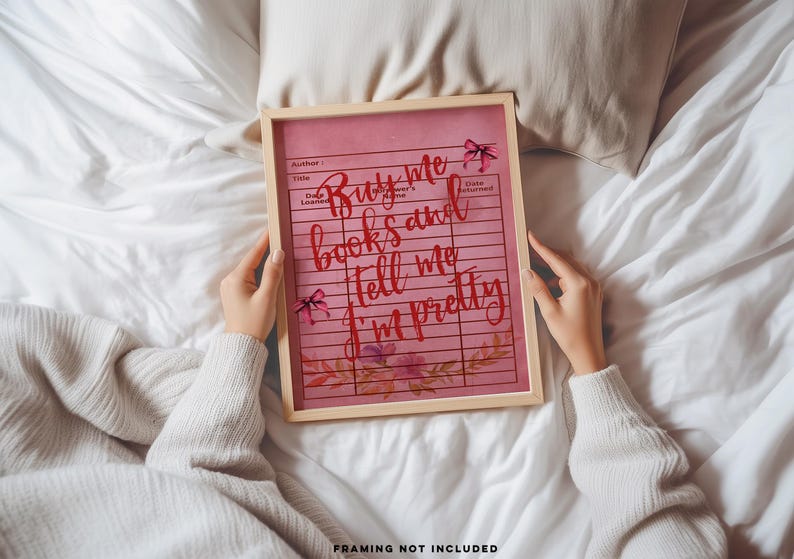 Author :
Title
Date Loaned
Borrower's Name
Date Returned
Buy me
books and
tell me
I'm pretty
FRAMING NOT INCLUDED